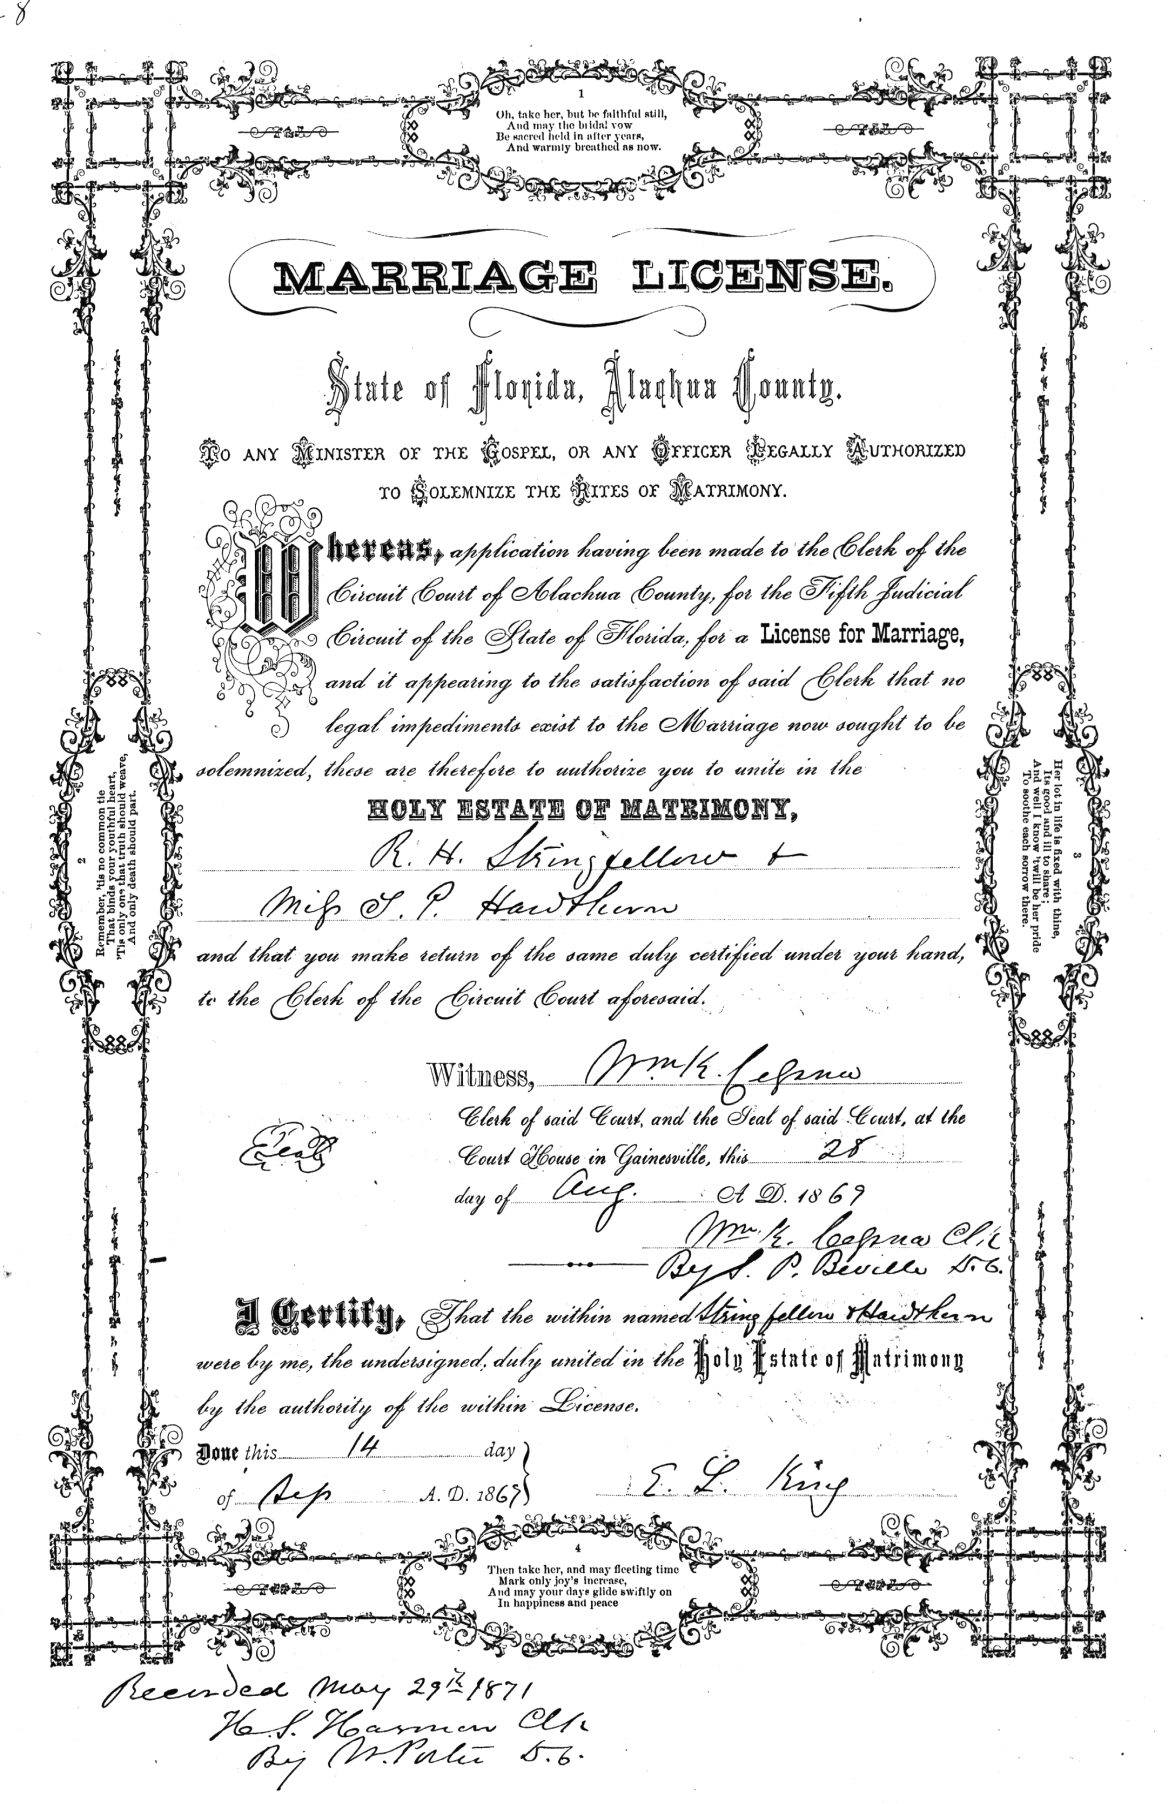 8
1
Oh, take her, but be faithful still,
And may the bridal vow
Be sacred held in after years,
And warmly breathed as now.
MARRIAGE LICENSE.
State of Florida, Alachua County.
TO ANY MINISTER OF THE GOSPEL, OR ANY OFFICER LEGALLY AUTHORIZED
TO SOLEMNIZE THE RITES OF MATRIMONY.
Whereas, application having been made to the Clerk of the
Circuit Court of Alachua County, for the Fifth Judicial
Circuit of the State of Florida, for a License for Marriage,
and it appearing to the satisfaction of said Clerk that no
legal impediments exist to the Marriage now sought to be
solemnized, these are therefore to authorize you to unite in the
HOLY ESTATE OF MATRIMONY,
R. H. Stringfellow &
Miss S. P. Hawthorn
and that you make return of the same duly certified under your hand,
to the Clerk of the Circuit Court aforesaid.
2
Remember, 'tis no common tie
That binds your youthful heart,
'Tis only one that truth should weave,
And only death should part.
3
Her lot in life is fixed with thine,
Its good and ill to share;
And well I know 'twill be her pride
To soothe each sorrow there.
Witness, Wm K. Cessna
Clerk of said Court, and the Seal of said Court, at the
Seal
Court House in Gainesville, this 28
day of Aug. A D. 1869
Wm. K. Cessna Clk
By S. P. Beville D.C.
I Certify, That the within named Stringfellow & Hawthorn
were by me, the undersigned, duly united in the Holy Estate of Matrimony
by the authority of the within License.
Done this 14 day
of Sep A. D. 1869
E. L. King
4
Then take her, and may fleeting time
Mark only joy's increase,
And may your days glide swiftly on
In happiness and peace
Recorded May 29th 1871
H. S. Harmon Clk
By W. Porter D.C.